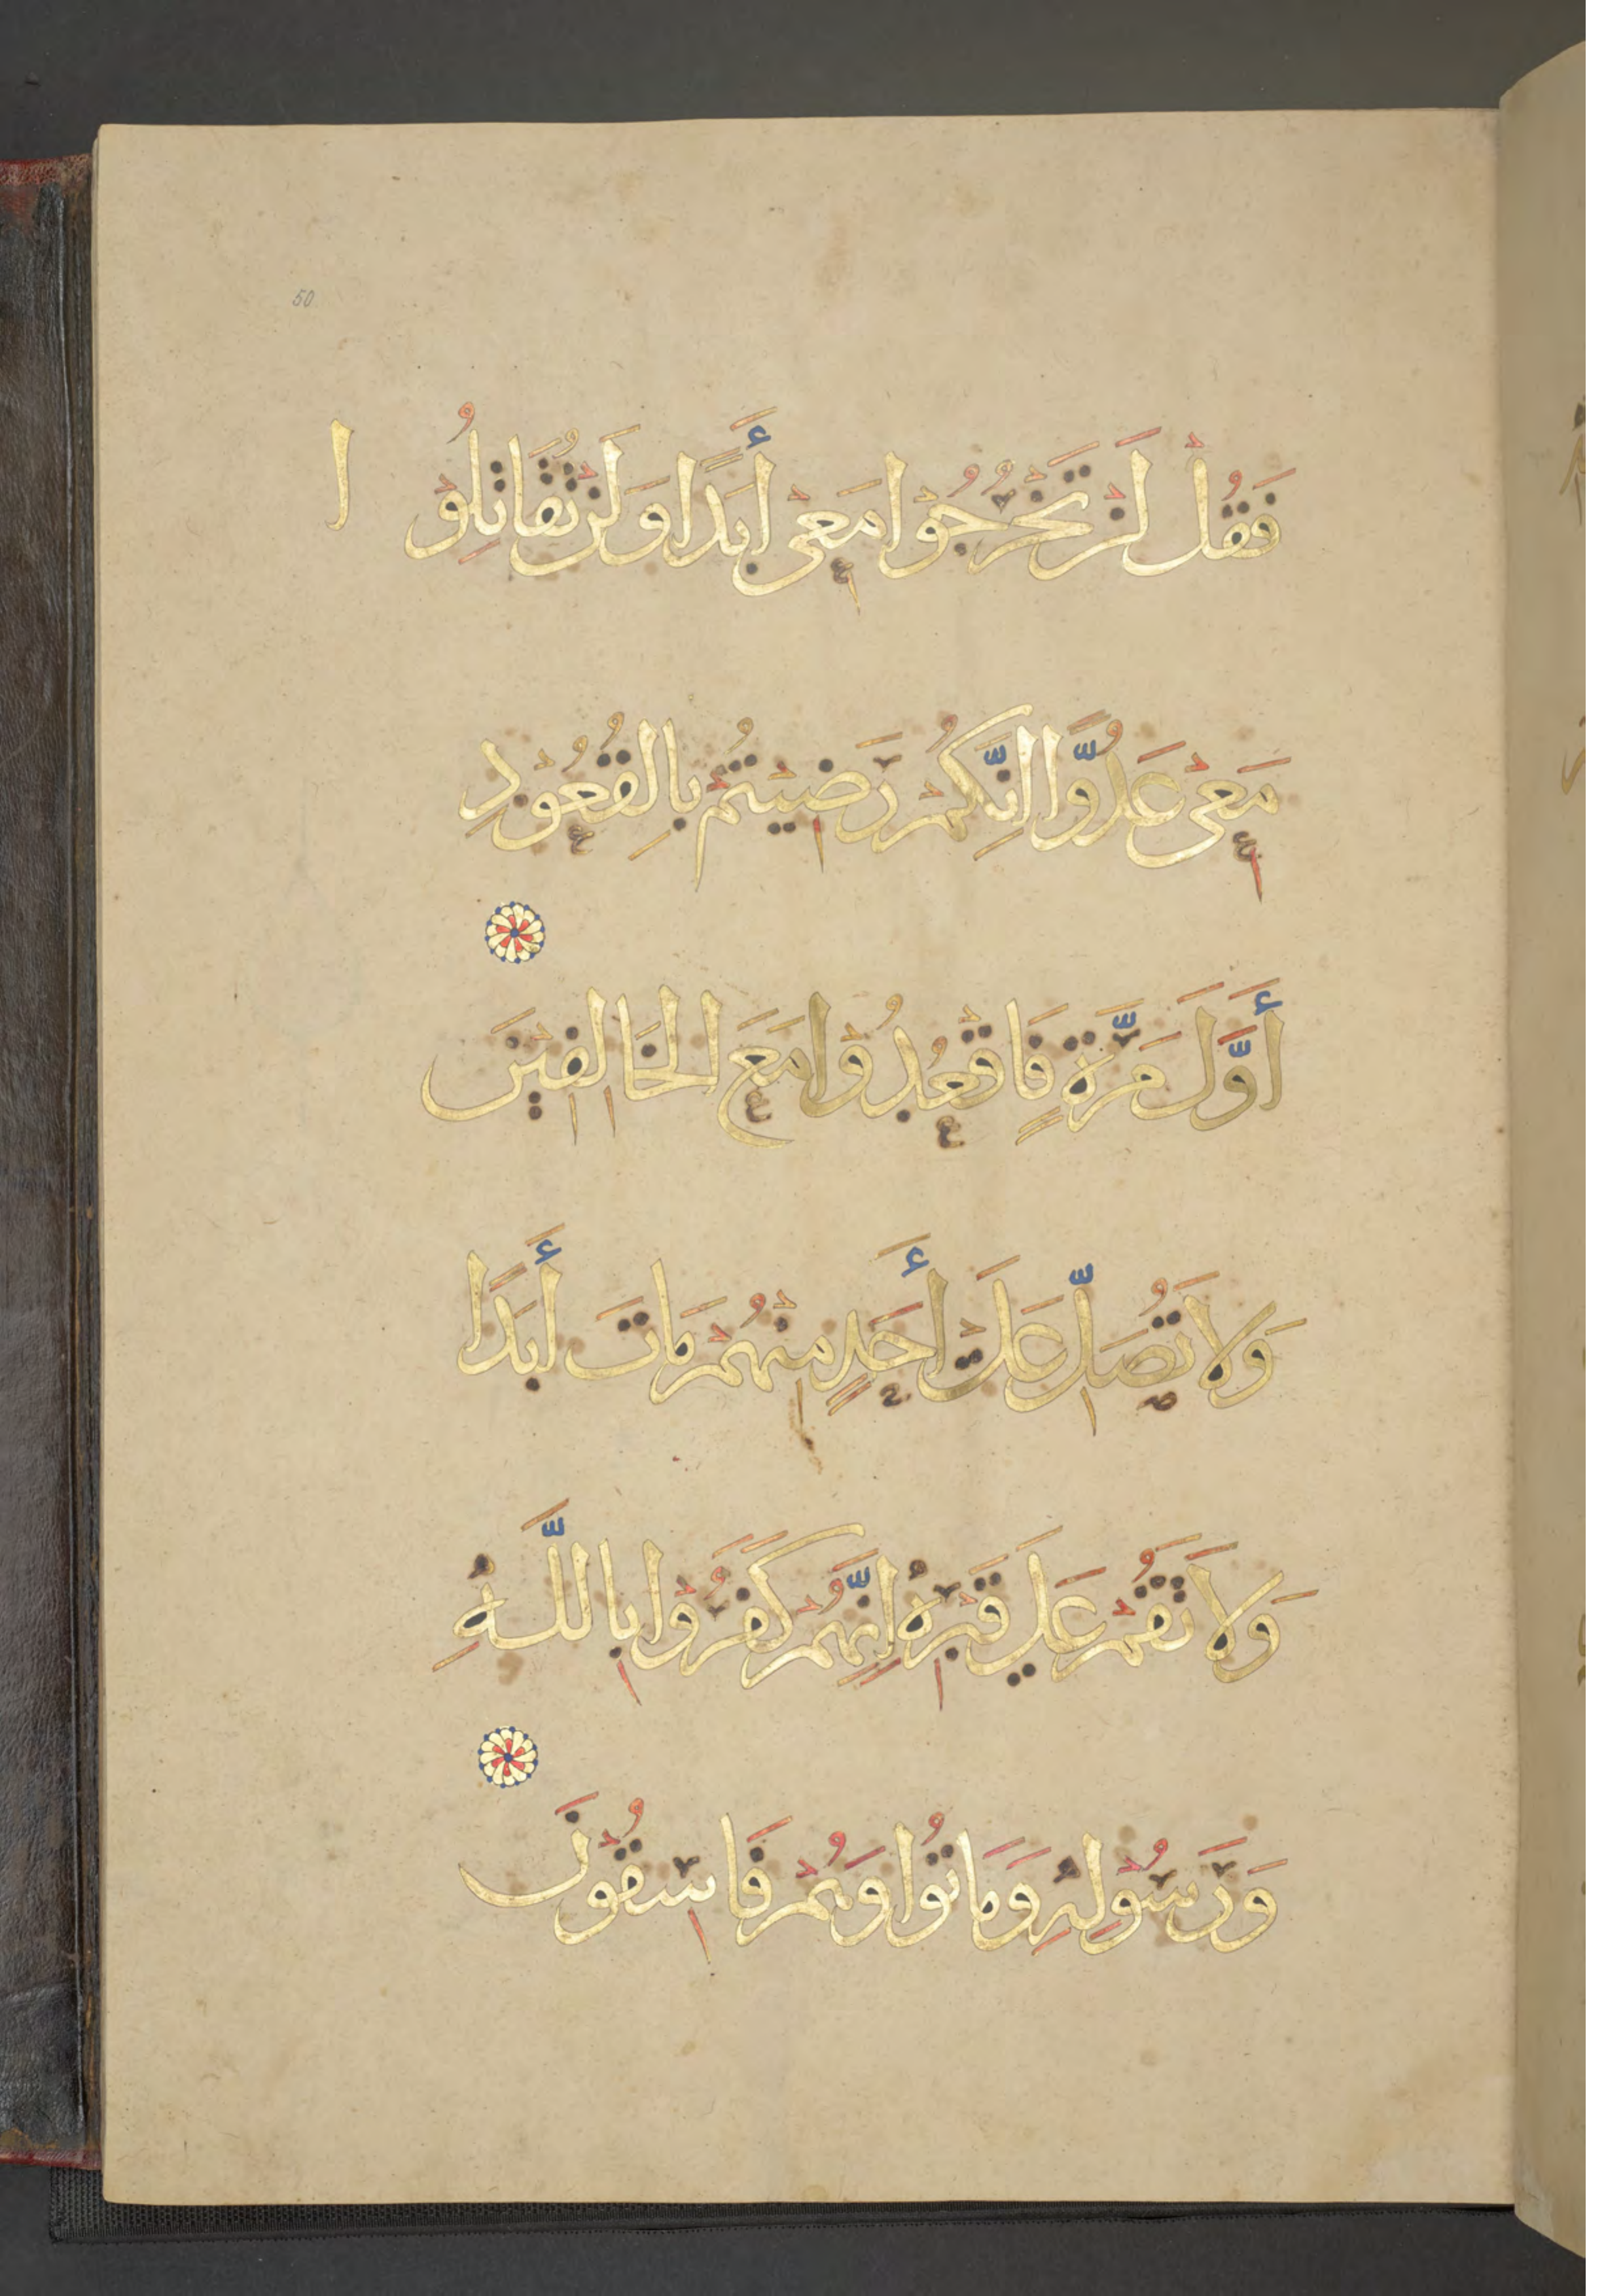 50
فَقُلْ لَنْ تَخْرُجُوْا مَعِيْ أَبَدًا وَلَنْ تُقَاتِلُوْا
مَعِيْ عَدُوًّا اِنَّكُمْ رَضِيْتُمْ بِالقُعُوْدِ
أَوَّلَ مَرَّةٍ فَاقْعُدُوْا مَعَ الخَالِفِيْنَ
وَلَا تُصَلِّ عَلَىْ أَحَدٍ مِنْهُمْ مَاتَ أَبَدًا
وَلَا تَقُمْ عَلَى قَبْرِهِ اِنَّهُمْ كَفَرُوْا بِاللَّهِ
وَرَسُوْلِهِ وَمَاتُوْا وَهُمْ فَاسِقُوْنَ